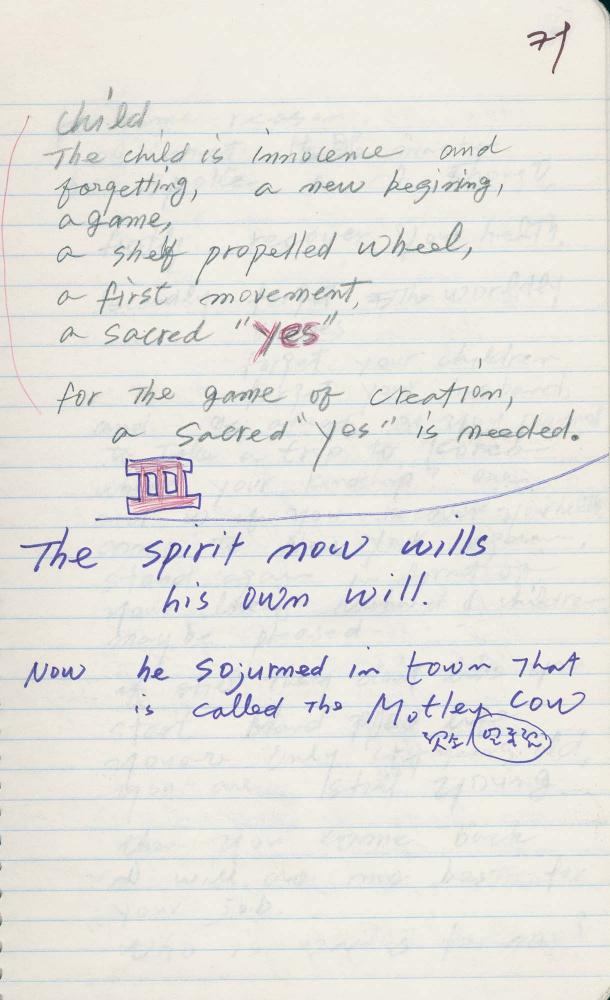 71
child
The child is innocence and
forgetting, a new begining,
a game,
a shelf propelled wheel,
a first movement,
a sacred "yes"
for the game of creation,
a sacred "yes" is needed.
III
The spirit now wills
his own will.
Now he sojurned in town that
is called the Motley Cow
얼룩